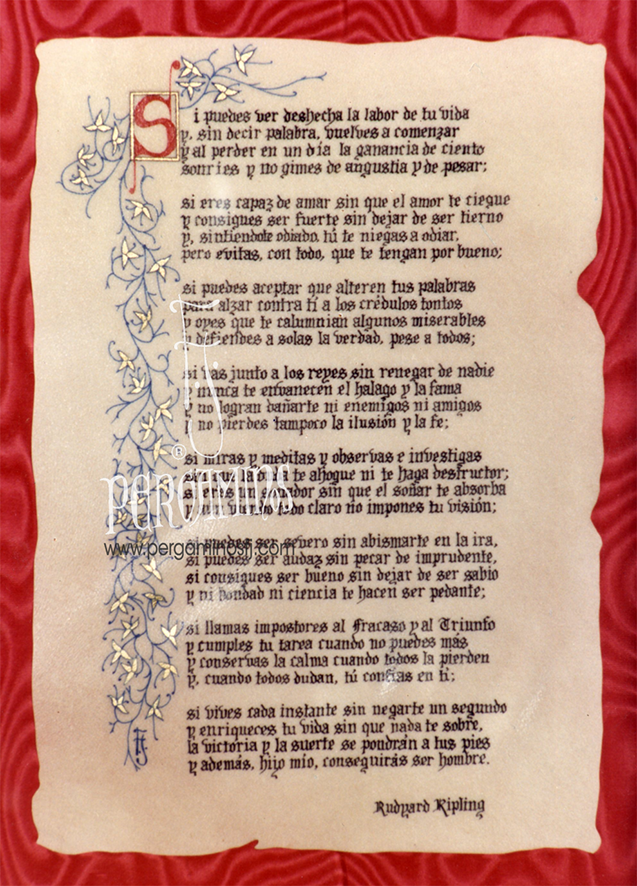 Si puedes ver deshecha la labor de tu vida
y, sin decir palabra, vuelves a comenzar
y al perder en un día la ganancia de ciento
sonríes y no gimes de angustia y de pesar;
si eres capaz de amar sin que el amor te ciegue
y consigues ser fuerte sin dejar de ser tierno
y, sintiendote odiado, tú te niegas a odiar,
pero evitas, con todo, que te tengan por bueno;
si puedes aceptar que alteren tus palabras
para alzar contra tí a los crédulos tontos
y oyes que te calumnian algunos miserables
y defiendes a solas la verdad, pese a todos;
si vas junto a los reyes sin renegar de nadie
y nunca te envanecen el halago y la fama
y no logran dañarte ni enemigos ni amigos
y no pierdes tampoco la ilusión y la fe;
si miras y meditas y observas e investigas
la duda te ahogue ni te haga destructor;
si eres un soñador sin que el soñar te absorba
y todo claro no impones tu visión;
si puedes ser severo sin abismarte en la ira,
si puedes ser audaz sin pecar de imprudente,
si consigues ser bueno sin dejar de ser sabio
y ni bondad ni ciencia te hacen ser pedante;
si llamas impostores al Fracaso y al Triunfo
y cumples tu tarea cuando no puedes más
y conservas la calma cuando todos la pierden
y, cuando todos dudan, tú confías en tí;
si vives cada instante sin negarte un segundo
y enriqueces tu vida sin que nada te sobre,
la victoria y la suerte se pondrán a tus pies
y además, hijo mío, conseguirás ser hombre.
Rudyard Kipling
®
PERGAMINOS